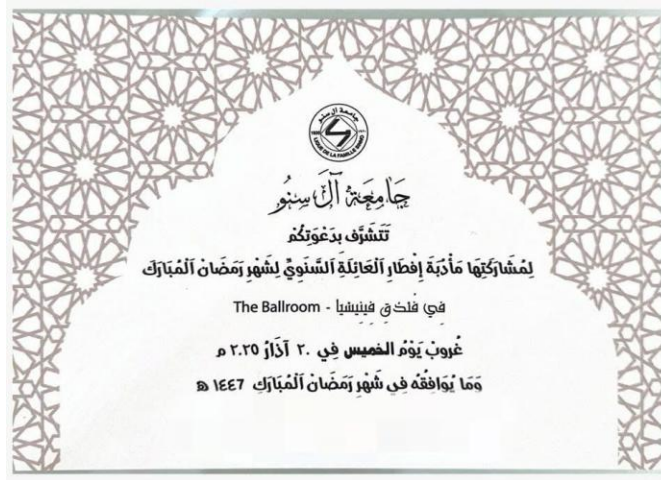 جامعة آل سنو
LIGUE DE LA FAMILLE SINNO
جَامِعَة آل سِنُو
تَتَشَرَّف بِدَعْوَتِكُمْ
لِمُشَارَكَتِهَا مَأْدُبَةَ إِفْطَارِ ٱلْعَائِلَةِ ٱلسَّنَوِيِّ لِشَهْرِ رَمَضَانْ ٱلْمُبَارَكْ
فِي فُنْدُقِ فِينِيشْيَا - The Ballroom
غُروبْ يَوْمْ الخميس فِي ٢٠ آذَارْ ٢٠٢٥ م
وَمَا يُوَافِقُهُ فِي شَهْرِ رَمَضَانْ ٱلْمُبَارَكِ ١٤٤٧ ھ